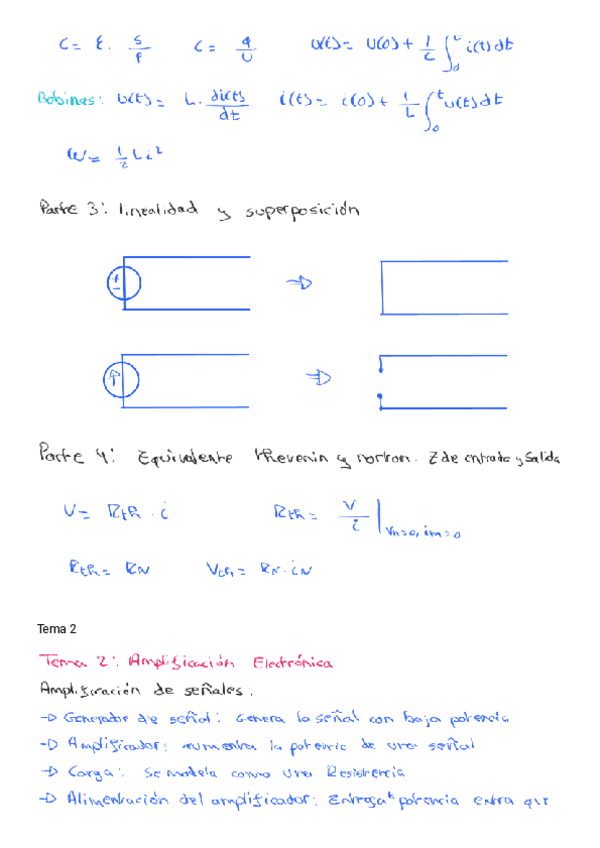 C = ε. S/ρ   C = q/U   U(t) = U(0) + 1/C ∫₀ᵗ i(t)dt
Bobinas: U(t) = L. di(t)/dt   i(t) = i(0) + 1/L ∫₀ᵗ u(t)dt
W = 1/2 Li²
Parte 3: linealidad y superposición
Parte 4: Equivalente thevenin y norton. Z de entrada y Salida
V = Rth . i   Rth = V/i | Vn=0, im=0
Rth = RN   Vth = RN . iN
Tema 2
Tema 2: Amplificación Electrónica
Amplificación de señales:
→ Generador de señal: Genera la señal con baja potencia
→ Amplificador: aumenta la potencia de una señal
→ Carga: Se modela como una Resistencia
→ Alimentación del amplificador: Entrega potencia extra que